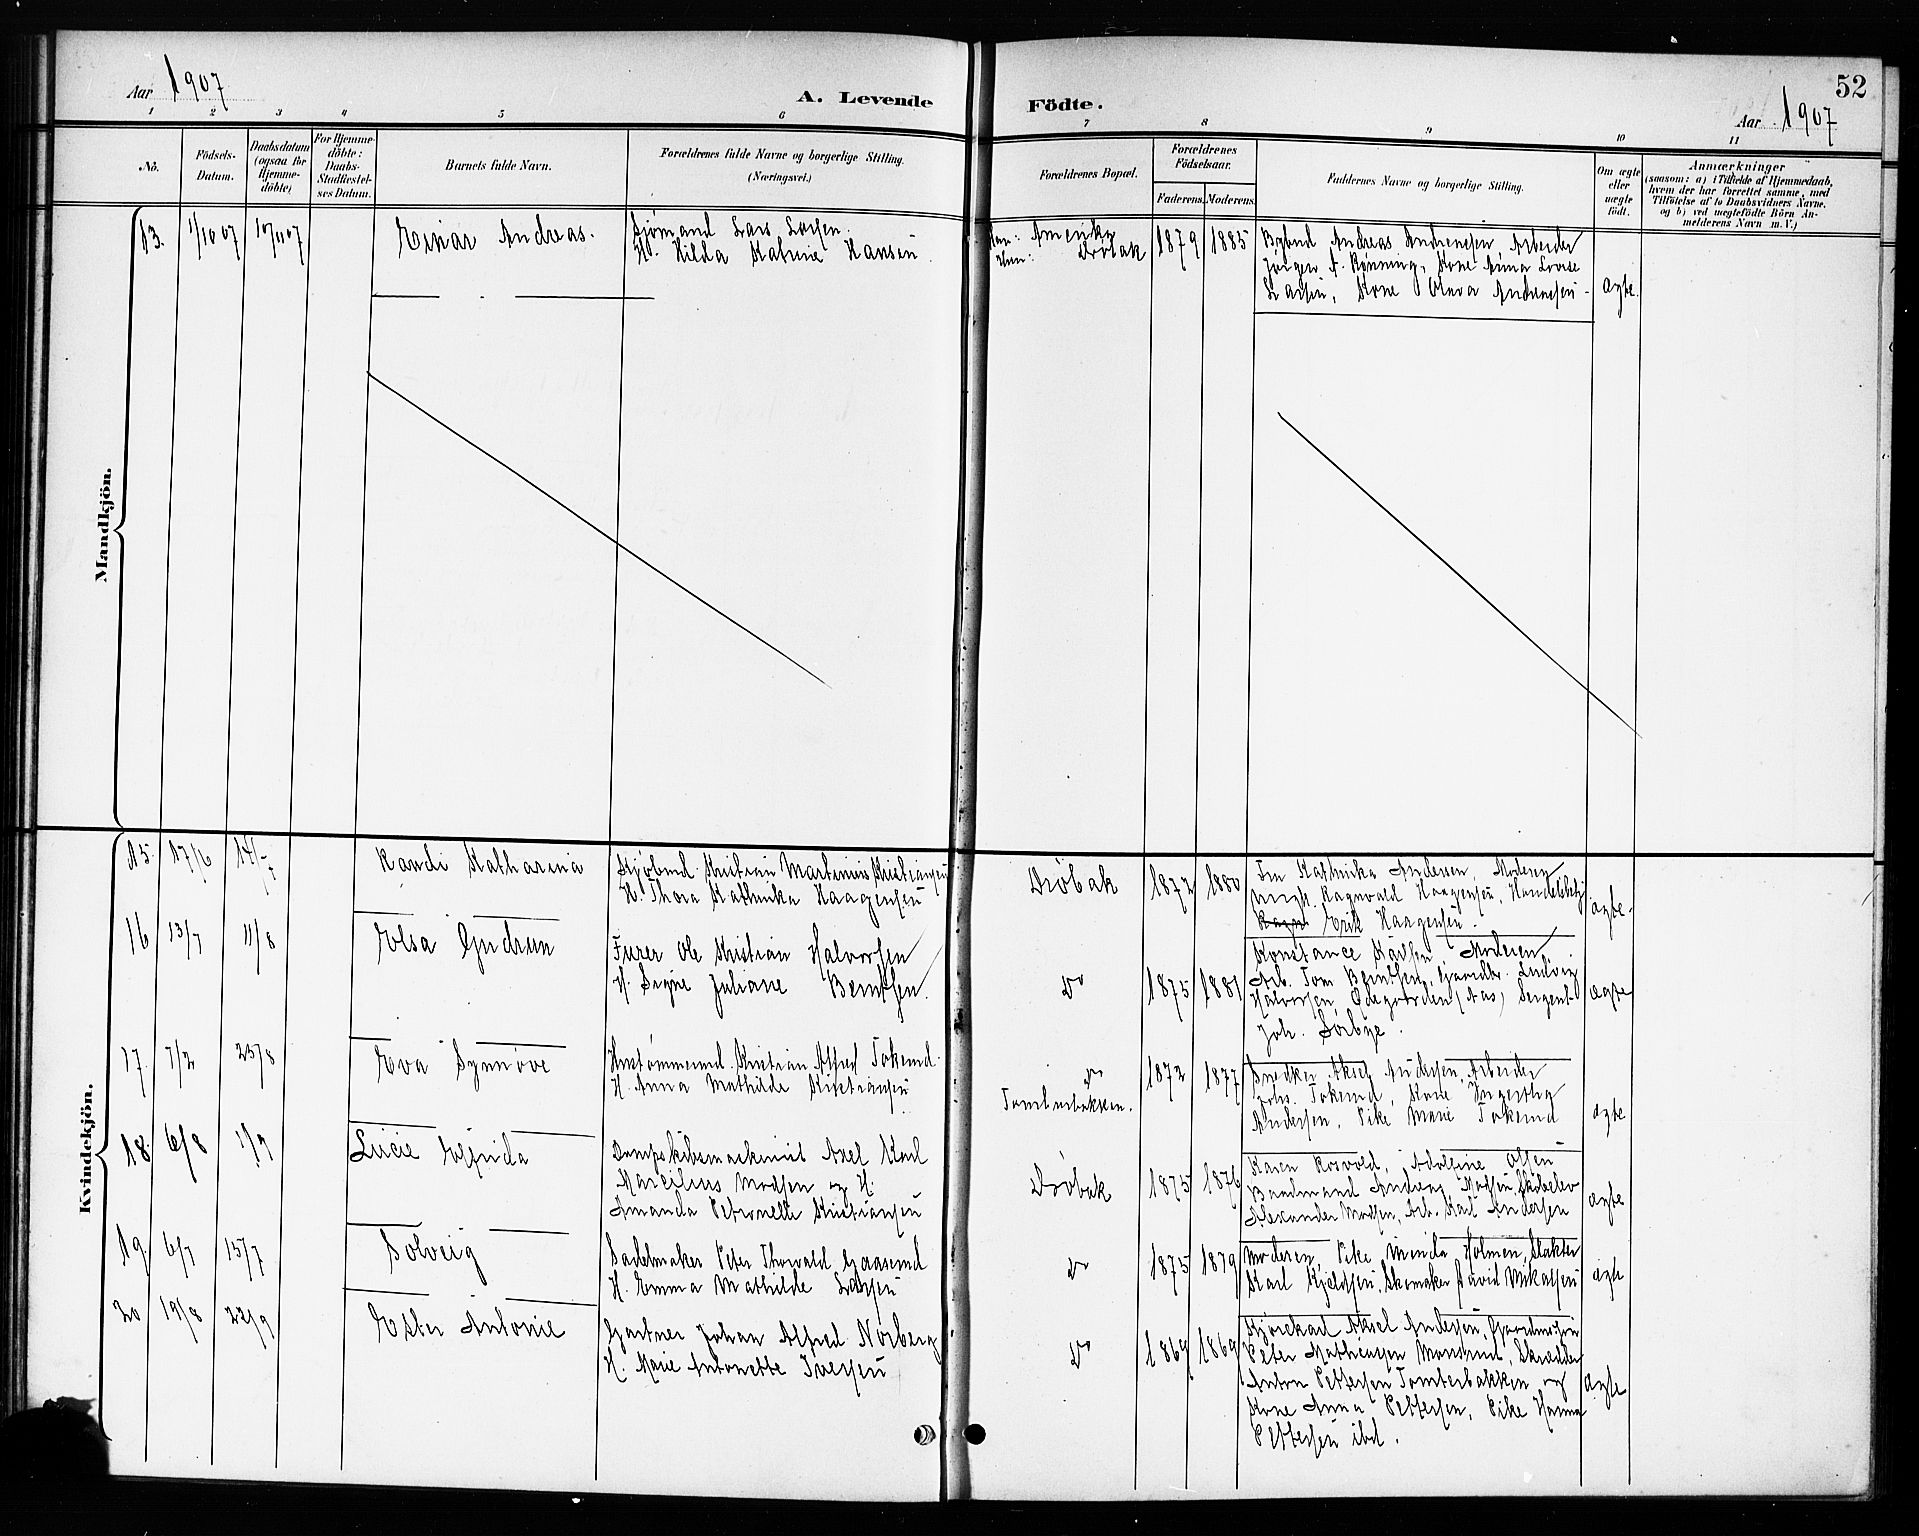 Aar 1907
A. Levende
Födte.
Aar 1907
52
1 2 3 4 5 6 7 8 9 10 11
No.
Födsels-
Datum.
Daabsdatum
(ogsaa for
Hjemme-
döbte)
For Hjemme-
döbte:
Daabs-
Stadfæstel-
ses Datum.
Barnets fulde Navn.
Forældrenes fulde Navne og borgerlige Stilling.
(Næringsvei.)
Forældrenes Bopæl.
Forældrenes
Födselsaar.
Faderens. Moderens.
Faddernes Navne og borgerlige Stilling.
Om ægte
eller
uægte
födt.
Anmærkninger
(saasom: a) i Tilfælde af Hjemmedaab,
hvem der har forrettet samme, med
Tilföielse af to Daabsvidners Navne.
og b) ved uægtefödte Börn An-
melderens Navn m. V.)
Mandkjön.
13. 1/10 07 10/11 07 Einar Andreas.
Sjömand Lars Larsen
H. Hilda Katrine Hansen
Han: Amerika
Hun: Dröbak
1879 1885
Bybud Andreas Andreassen, Arbeider
Jörgen A. Rönning, Kone Anna Lovise
Larsen, Kone Olava Andreassen
ægte.
Kvindekjön.
15. 17/6 14/7 Randi Katharina
Kristian Martinius Kristiansen
H. Thora Kathinka Haagensen
Dröbak 1872 1880
Fru Kathinka Andersen, Moderen
Ragnvald Haagensen, Handelsbetj.
Erik Haagensen.
ægte.
16 13/7 11/8 Elsa Gudrun
Furer Ole Kristian Halvorsen
H. Signe Juliane Berntsen.
Do 1875 1881
Konstance Karlsen, Moderen
Arb. Tom Berntsen, Gaardbr. Ludvig
Halvorsen, Ödegaarden (Aas) Sergent
Joh. Sörbye.
ægte
17. 7/2 25/8 Eva Synnöve
Hustömmermd. Kristian Alfred Tokerud
H. Anna Mathilde Kristiansen
Do
Tomterbakken.
1872 1877
Snedker Aksel Andersen, Arbeider
Johs. Tokerud, Kone Ingeborg
Andersen, Pike Marie Tokerud
ægte
18. 6/8 1/9 Lucie Elfrida
Dampskibsmaskinist Axel Karl
Marcilius Madsen og H.
Amanda Petronelle Kristiansen
Dröbak 1875 1876
Karen Rosvold, Adolfine Olsen
Baadmand Andreas Madsen,
Alexander Madsen, Arb. Karl Andersen
ægte
19. 6/7 15/7 Solveig
Sadelmaker Peter Thorvald Gaaserud
H. Emma Mathilde Larsen
Do 1875 1879
Moderen, Pike Minda Holmen, Slakter
Karl Kjeldsen, Skomaker David Mikalsen
ægte
20 19/8 22/9 Ester Antonie
Gartner Johan Alfred Norberg
H. Marie Antonette Iversen
Do 1869 1869
Kjörekarl Aksel Andersen,
Peter Mathiassen Skrædder
Anton Pettersen Tomterbakken og
Kone Anna Pettersen, Pike Hanna
Pettersen ibd.
ægte